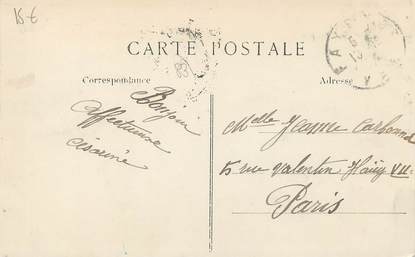 15 €
CARTE POSTALE
Correspondance
Adresse
Bonjour
affectueux
Césarine
Melle Jeanne Carbonnel
15 rue Valentin Haüy VII
Paris